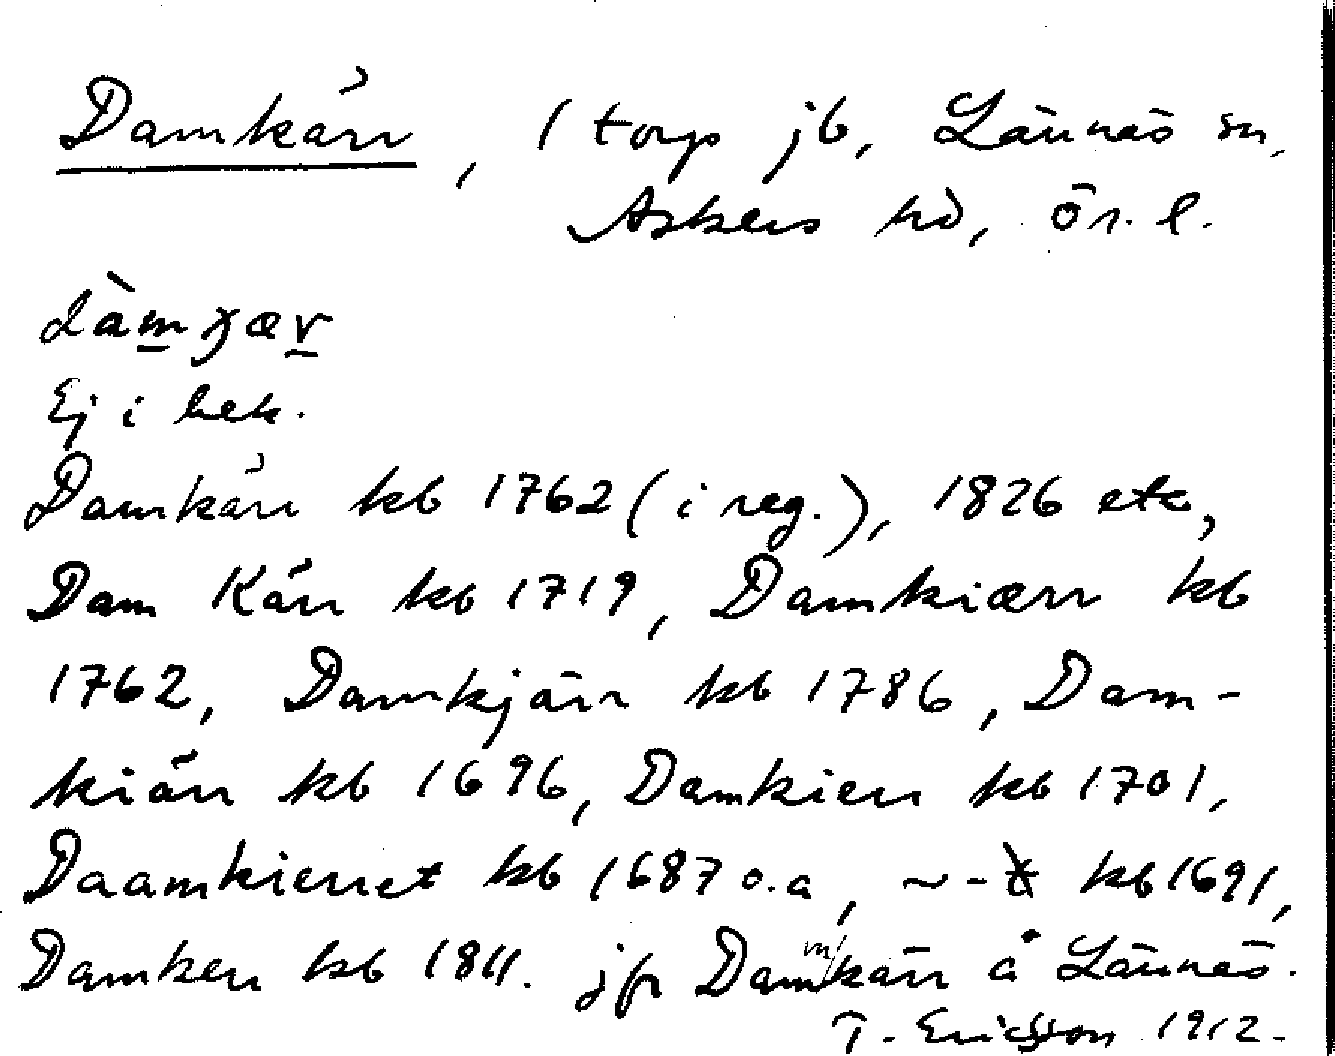 Damkärr, 1 torp jb, Lännäs sn,
Askers hd, Ör. l.
dàmɟær
Ej i bek.
Damkärr kb 1762 (i reg.), 1826 etc,
Dam Kärr kb 1719, Damkiærr kb
1762, Damkjärr kb 1786, Dam-
kiärr kb 1696, Damkierr kb 1701,
Daamkierret kb 1687 o.a, ~ - kb 1691,
Damkerr kb 1811. jfr Dammkärr å Lännäs.
T. Ericsson 1912.